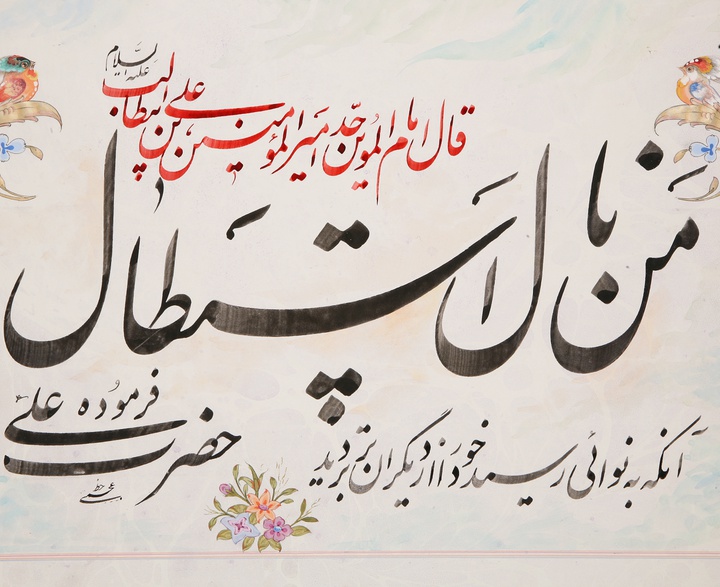 قال امام الموحدین امیر المؤمنین علی بن ابیطالب علیه السلام
من نال استطال
آنکه به نوائی رسید خود را از دیگران برتر دید
فرموده حضرت علی